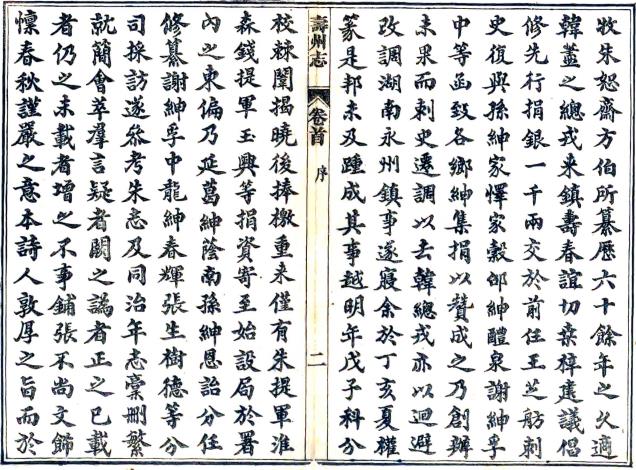 牧朱恕齋方伯所纂歷六十餘年之久適
韓藎之總戎來鎮壽春誼切桑梓建議倡
修先行捐銀一千兩交於前任王芝舫刺
史復與孫紳家懌家穀邰紳醴泉謝紳孚
中等函致各鄉紳集捐以贊成之乃創辦
未果而刺史遷調以去韓總戎亦以迴避
改調湖南永州鎮事遂寢余於丁亥夏權
篆是邦未及踵成其事越明年戊子科分
壽州志
卷首
序
二
校棘闈揭曉後捧檄重來僅有朱提軍淮
森錢提軍玉興等捐資寄至始設局於署
內之東偏乃延葛紳蔭南孫紳恩詒分任
修纂謝紳孚中龍紳春輝張生樹德等分
司採訪遂參考朱志及同治年志稾刪繁
就簡會萃羣言疑者闕之譌者正之已載
者仍之未載者增之不事鋪張不尚文飾
懍春秋謹嚴之意本詩人敦厚之旨而於